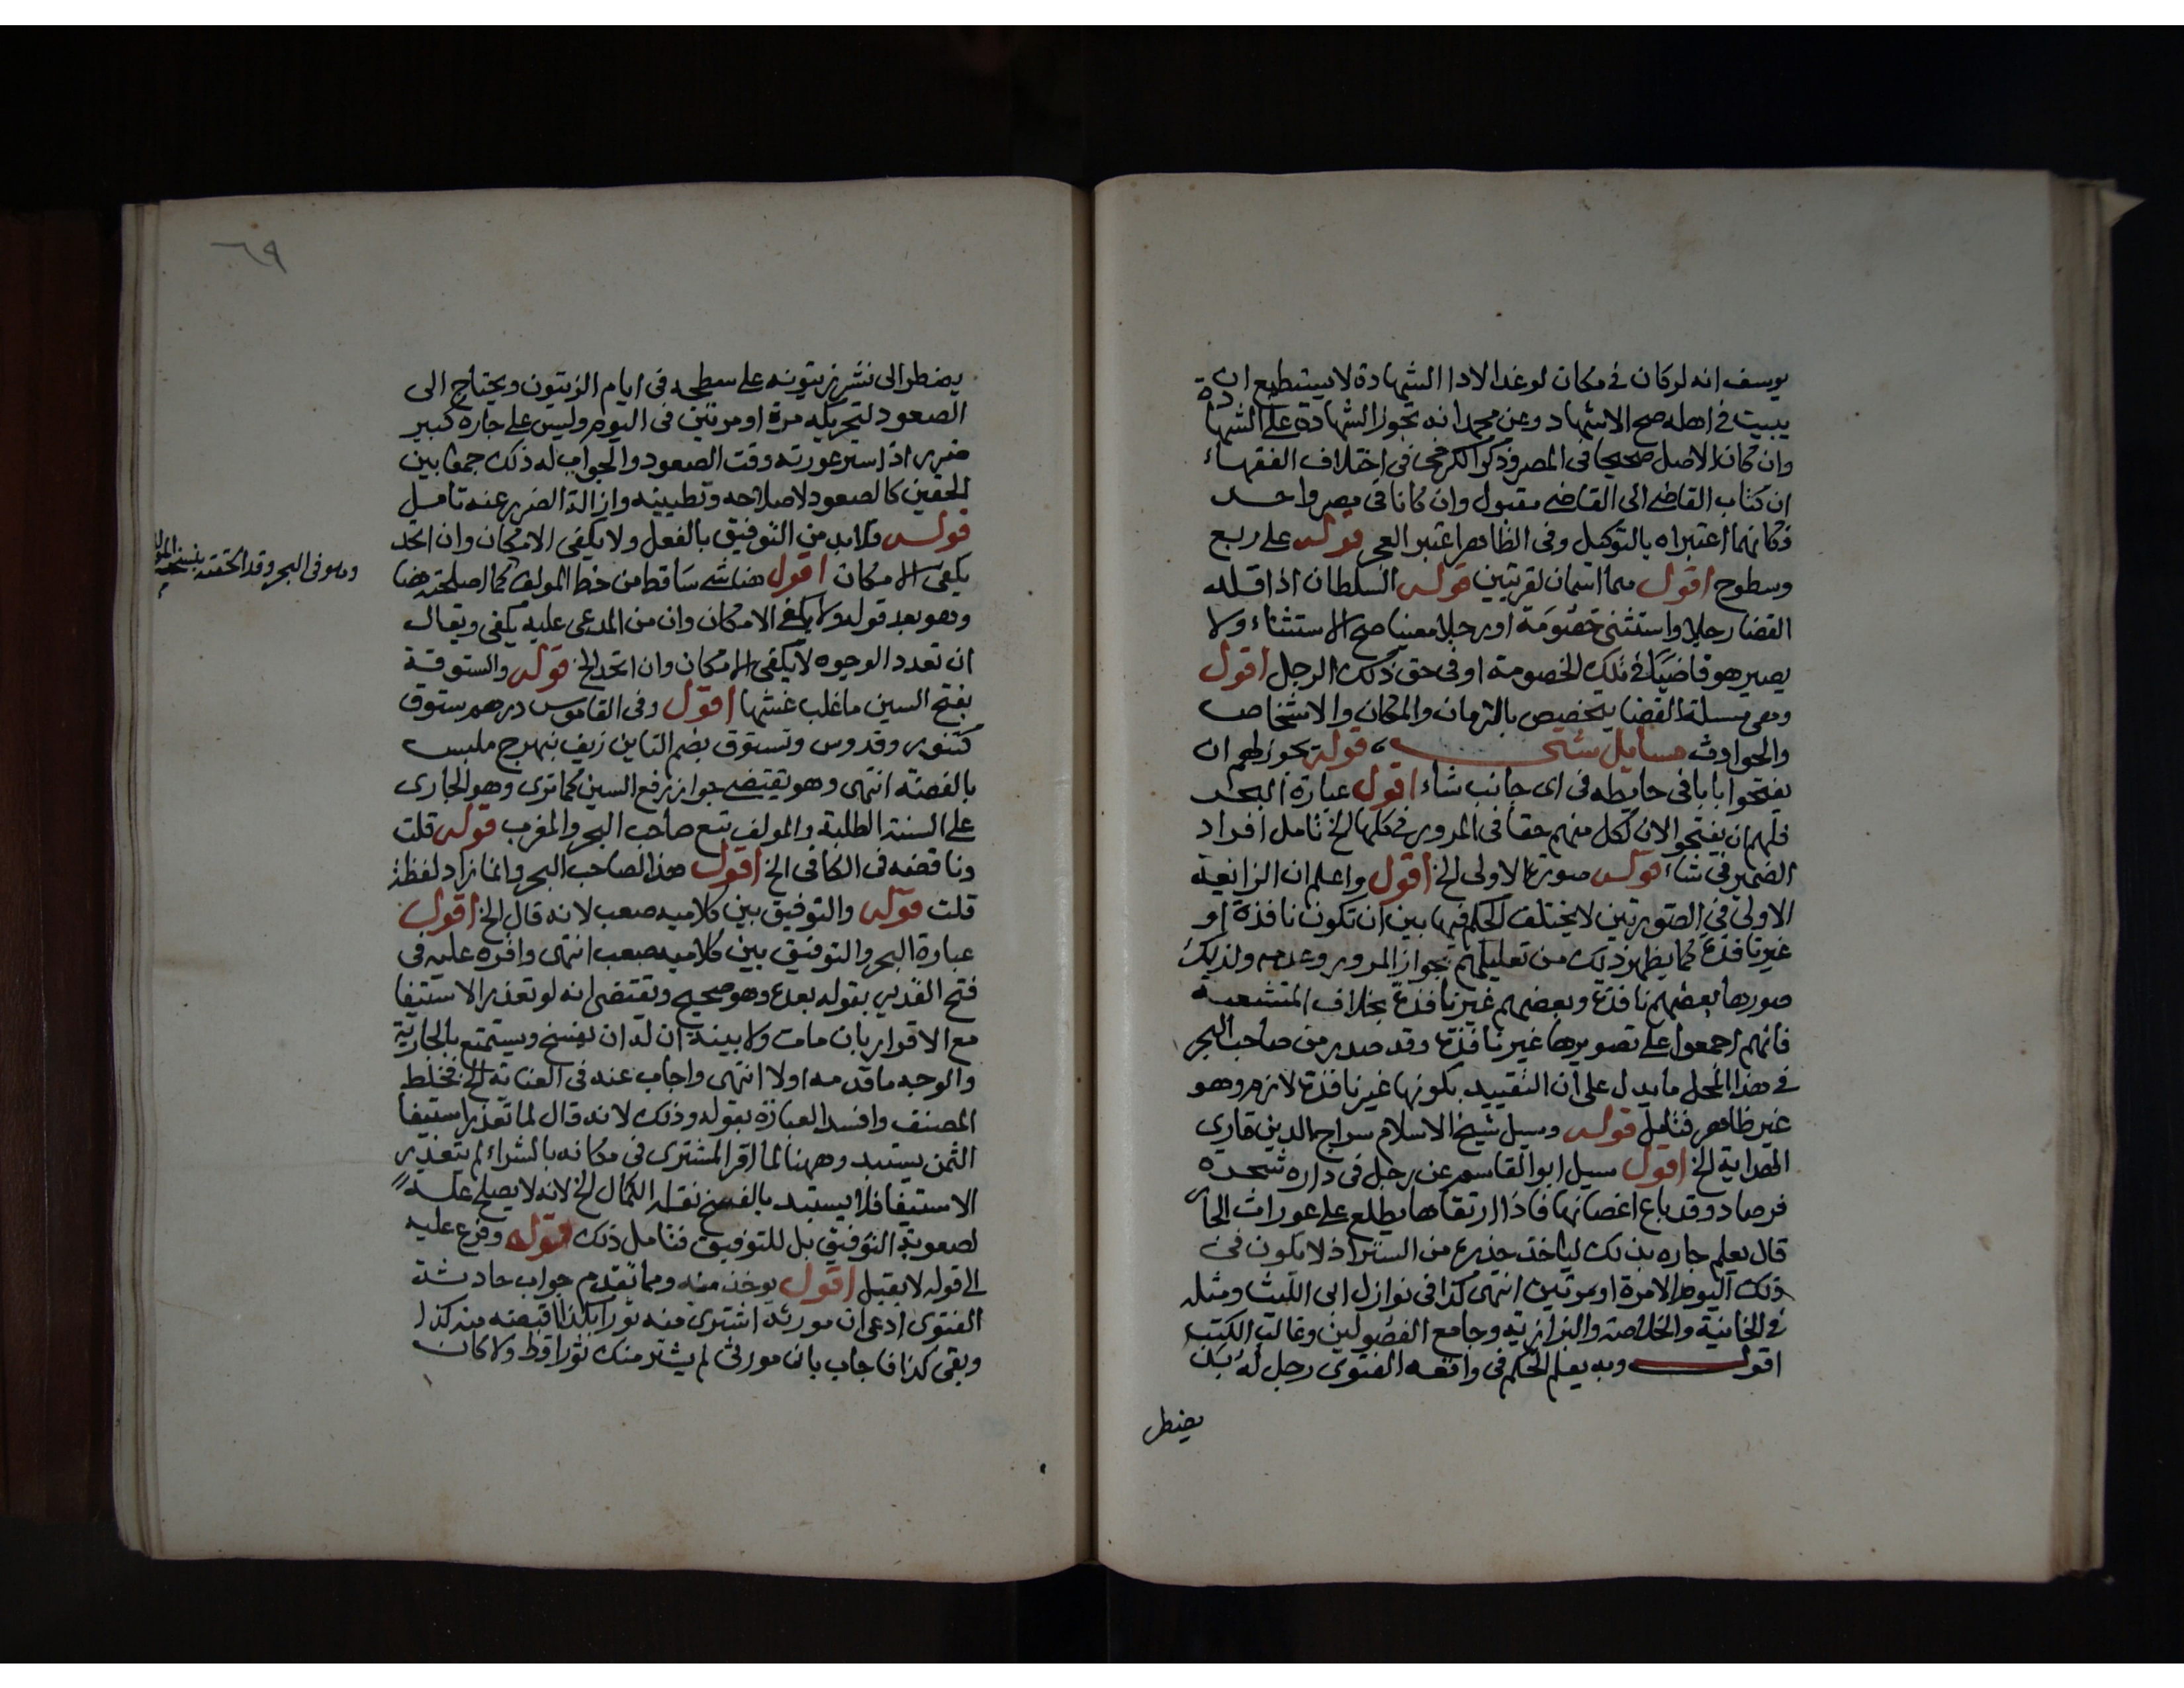 يوسف انه لو كان في مكان لو غدا لادا الشهادة لا يستطيع ان
يبيت في اهله صح الاشهاد وعن محمد انه تجوز الشهادة على الشهادة
وان كان الاصل صحيحا في المصر وذكر الكرخي في اختلاف الفقهاء
ان كتاب القاضي الى القاضي مقبول وان كانا في مصر واحد
فكانهما اعتبراه بالتوكيل وفي الظاهر اعتبر العجز قوله على ربع
وسطوح اقول هما اسمان لقريتين قوله السلطان اذا قلد
القضا رجلا واستثنى خصومة او رجلا معينا صح الاستثناء ولا
يصير هو قاضيا في تلك الخصومة او في حق ذلك الرجل اقول
وهي مسئلة القضا يتخصيص بالزمان والمكان والاشخاص
والحوادث مسايل شتى قوله يجوز لهم ان
يفتحوا بابا في حايطه في اى جانب شاء اقول عبارة البحر
فلهم ان يفتحوا لان لكل منهم حقا في المرور في كلها الخ تامل افراد
الضمير في شاء قوله صورة الاولى الخ اقول واعلم ان الزايغة
الاولى في الصورتين لا يختلف الحكم فيها بين ان تكون نافذة او
غير نافذة كما يظهر ذلك من تعليلهم بجواز المرور وعدمه ولذلك
صورها بعضهم نافذة وبعضهم غير نافذة بخلاف المتشعبة
فانهم اجمعوا على تصويرها غير نافذة وقد صدر من صاحب البحر
في هذا المحل ما يدل على ان التقييد بكونها غير نافذة لازم وهو
غير ظاهر فتامل قوله وسيل شيخ الاسلام سراج الدين قارى
الهداية الخ اقول سيل ابو القاسم عن رجل في داره شجرة
فرصاد وقد باع اغصانها فاذا ارتقاها يطلع على عورات الجار
قال يعلم جاره بذلك لياخذ حذره من الستر اذ لا يكون في
ذلك اليوم الا مرة او مرتين انتهى كذا في نوازل ابى الليث ومثله
في الخانية والخلاصة والبزازيه وجامع الفصولين وغالب الكتب
اقول وبه يعلم الحكم في واقعه الفتوى رجل له
يضطر
٦٩
يضطر الى نشر زيتونه على سطحه في ايام الزيتون ويحتاج الى
الصعود لتحريكه مرة او مرتين في اليوم وليس على جاره كبير
ضرر اذا ستر عورته وقت الصعود والجواب له ذلك جمعا بين
الحقين كالصعود لاصلاحه وتطيينه وازالة الضرر عنه تامل
قوله فلا بد من التوفيق بالفعل ولا يكفى الامكان وان اتحد
يكفى الامكان اقول هنا شي ساقط من خط المولف كما اصلحته هنا
وهو في البحر وقد الحقته بنسخة المولف
وهو بعد قوله ولا يكفى الامكان وان من المدعى عليه يكفى ويقال
ان تعدد الوجوه لا يكفى الامكان وان اتحد الخ قوله والستوقة
بفتح السين ما غلب غشها اقول وفي القاموس درهم ستوق
كتنور وقدوس وتستوق بضم التاين زيف بهرج ملبس
بالفضة انتهى وهو يقتضى جواز رفع السين كما ترى وهو الجارى
على السنة الطلبة والمولف تبع صاحب البحر والمغرب قوله قلت
وناقضه في الكافي الخ اقول هذا لصاحب البحر وانما زاد لفظة
قلت قوله والتوفيق بين كلاميه صعب لانه قال الخ اقول
عبارة البحر والتوفيق بين كلاميه صعب انتهى واقره عليه في
فتح القدير بقوله بعده وهو صحيح ويقتضى انه لو تعذر الاستيفا
مع الاقرار بان مات ولا بينة ان له ان يفسخ ويستمتع بالجارية
والوجه ما قدمه اولا انتهى واجاب عنه في العناية الخ فخلط
المصنف وافسد العبارة بقوله وذلك لانه قال لما تعذر استيفا
الثمن يستبد وههنا لما اقر المشترى في مكانه بالشراء لم يتعذر
الاستيفا فلا يستبد بالفسخ نقله الكمال الخ لانه لا يصلح علة
لصعوبة التوفيق بل للتوفيق فتامل ذلك قوله وفرع عليه
الى قوله لا يقبل اقول يوخذ منه ومما تقدم جواب حادثة
الفتوى ادعى ان مورثه اشترى منه ثورا بكذا قبضته منه كذا
وبقى كذا فاجاب بان مورثى لم يشتر منك ثورا قط ولا كان